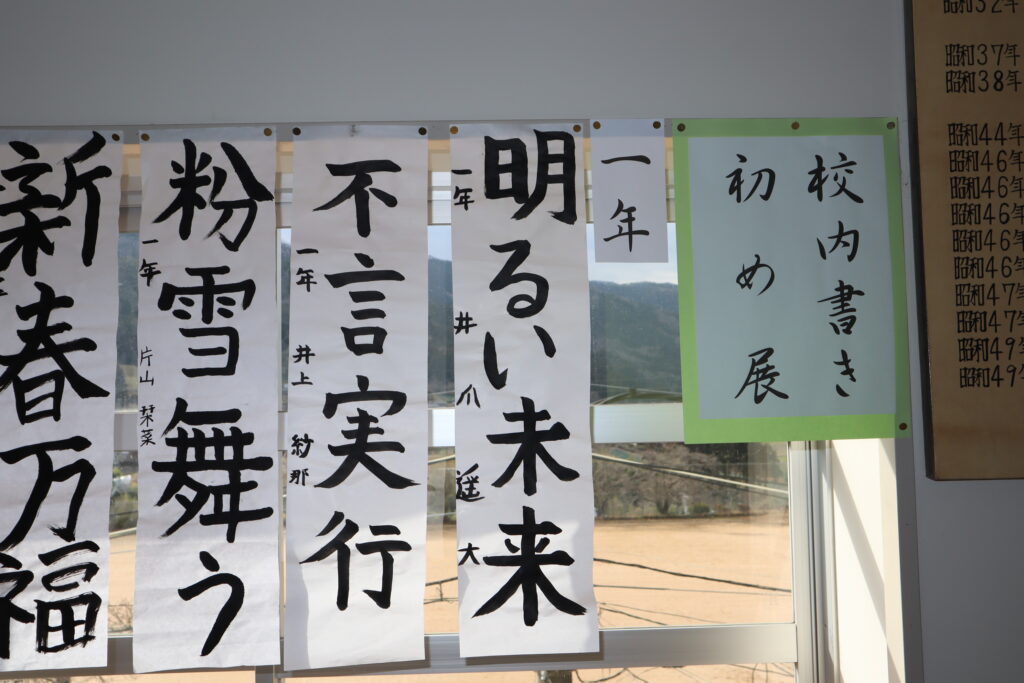 昭和32年
昭和37年
昭和38年
昭和44年
昭和46年
昭和46年
昭和46年
昭和46年
昭和46年
昭和47年
昭和47年
昭和49年
昭和49年
校内書き
初め展
一年
明るい未来
一年 井爪 遥大
不言実行
一年 井上 紗那
粉雪舞う
一年 片山 栞菜
新春万福